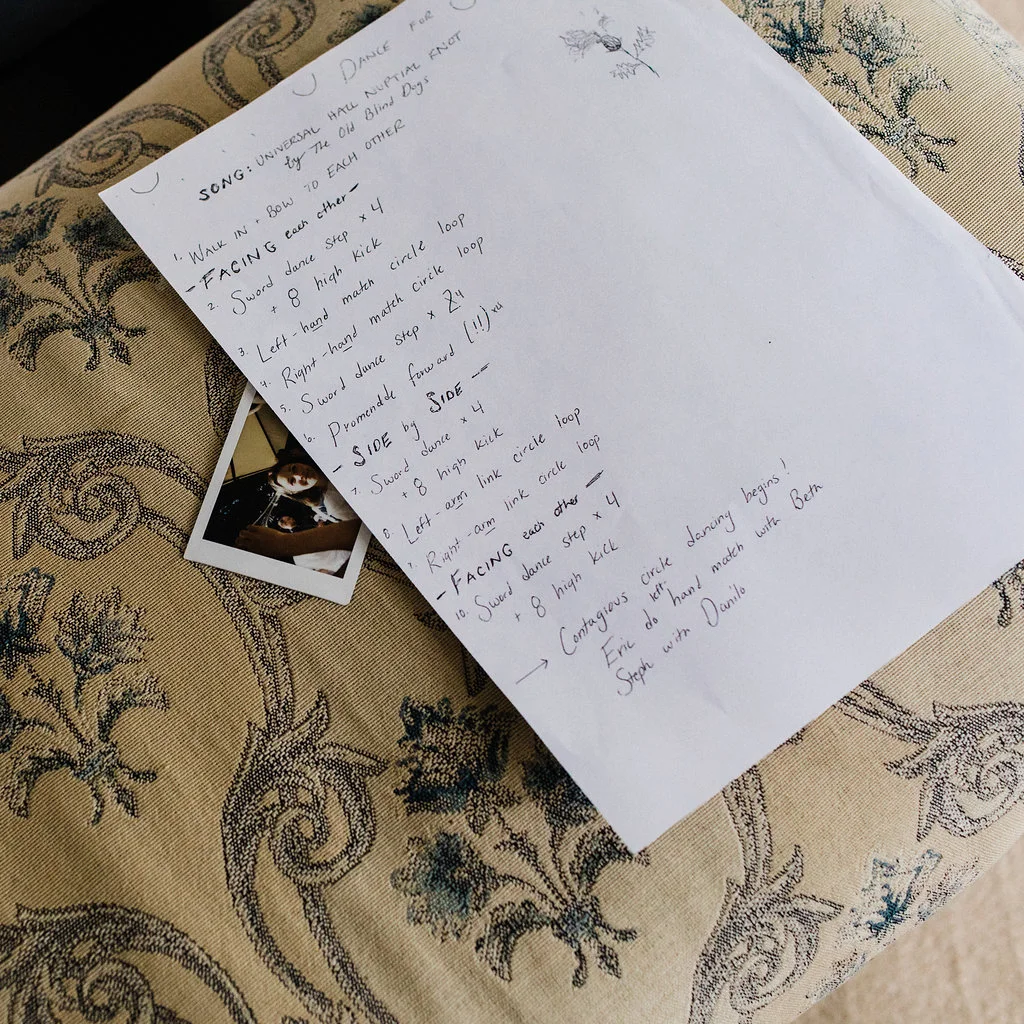 DANCE FOR
SONG: UNIVERSAL HALL NUPTIAL KNOT
by The Old Blind Dogs
1. WALK IN + BOW TO EACH OTHER
- FACING each other -
2. Sword dance step x 4
+ 8 high kick
3. Left-hand match circle loop
4. Right-hand match circle loop
5. Sword dance step x 4
6. Promenade forward (!!) x4
- SIDE by SIDE -
7. Sword dance x 4
+ 8 high kick
8. Left-arm link circle loop
9. Right-arm link circle loop
- FACING each other -
10. Sword dance step x 4
+ 8 high kick
→ Contagious circle dancing begins!
Eric do left hand match with Beth
Steph with Danilo